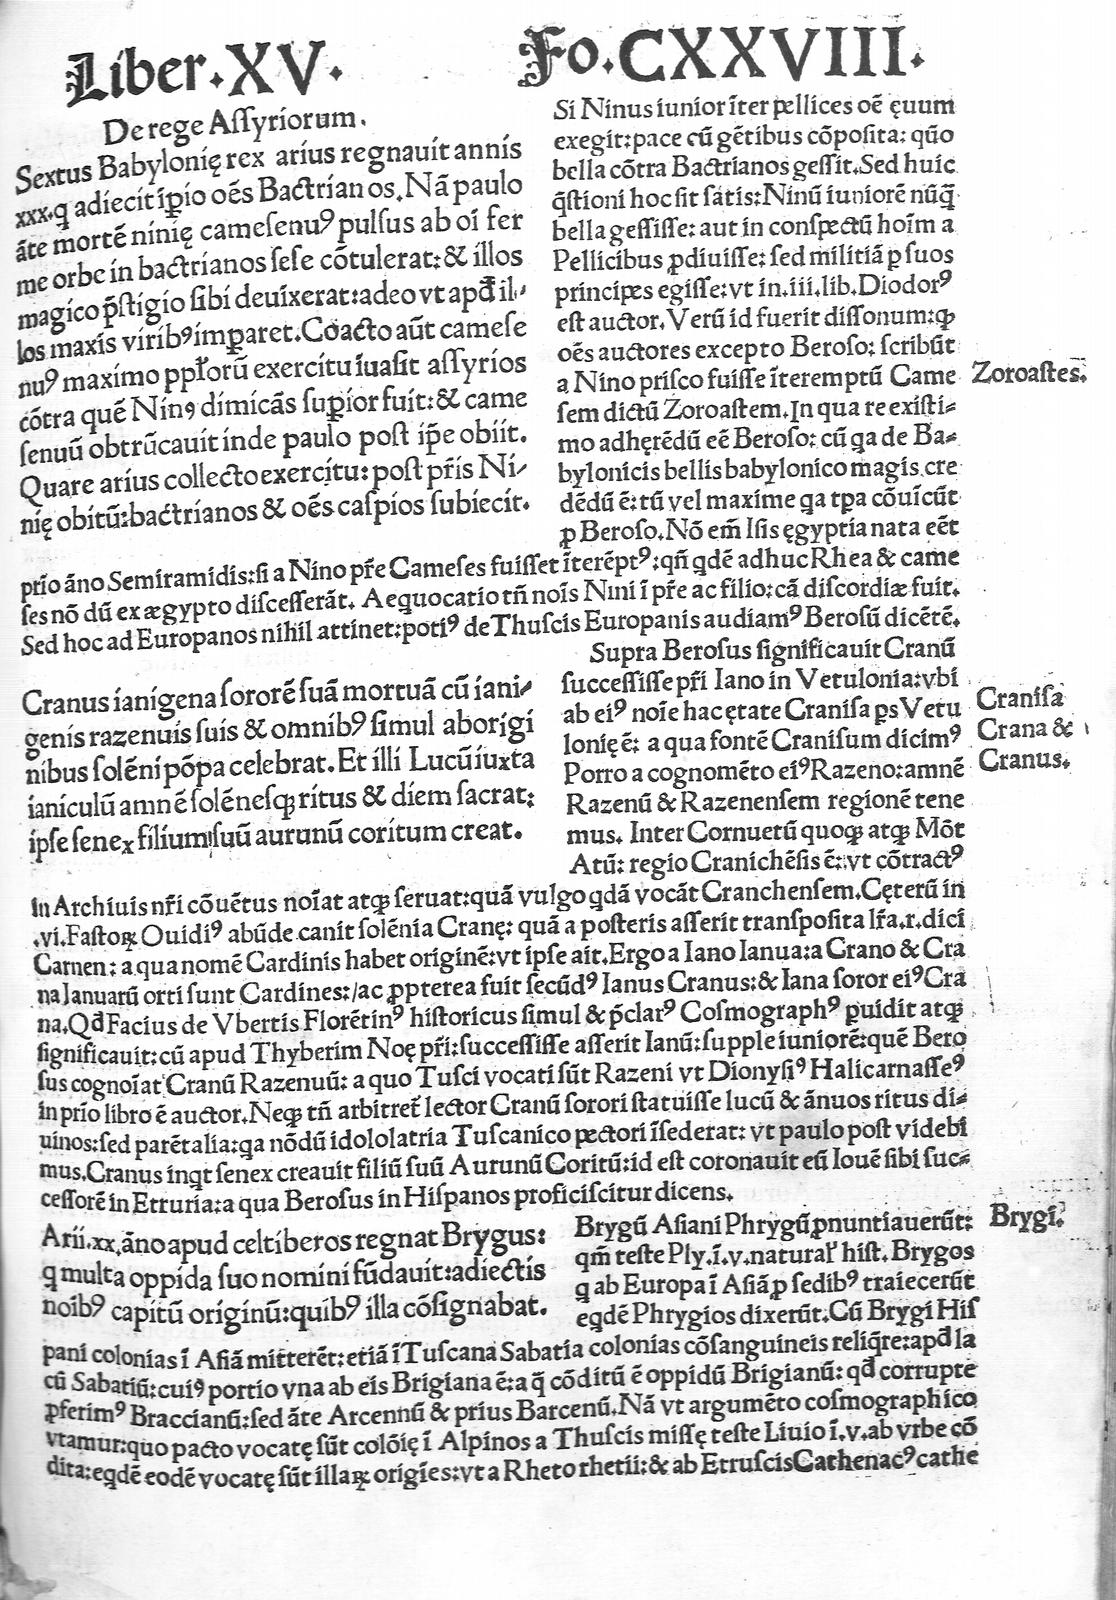 Liber.XV. Fo.CXXVIII.
De rege Aſſyriorum.
Sextus Babylonię rex arius regnauit annis
xxx.q adiecit īpio oēs Bactrianos. Nā paulo
āte mortē ninię cameſenuꝰ pulſus ab oī fer
me orbe in bactrianos ſeſe cōtulerat:& illos
magico pſtigio ſibi deuixerat:adeo vt apđ il,
los maxīs viribꝰ impaꝛet. Coacto aūt cameſe
nuꝰ maximo pploꝛū exercitu īuaſit aſſyrios
cōtra quē Ninꝰ dimicās ſuꝑior fuit:& came
ſenuū obtrūcauit inde paulo poſt ip̄e obiit.
Quare arius collecto exercitu: poſt pr̄is Ni⸗
nię obitū:bactrianos & oēs caſpios ſubiecit.
Si Ninus iunior īter pellices oē ęuum
exegit:pace cū gētibus cōpoſita: quō
bella cōtra Bactrianos geſſit. Sed huic
q̄ſtioni hoc ſit ſatis: Ninū iuniorē nūq̄
bella geſſiſſe: aut in conſpectū hoīm a
Pellicibus ꝓdiuiſſe: ſed militiā ꝑ ſuos
principes egiſſe: vt in.iii.lib. Diodorꝰ
eſt auctor. Verū id fuerit diſſonum:ꝙ
oēs auctores excepto Beroſo: ſcribūt
a Nino priſco fuiſſe īteremptū Came
ſem dictū Zoroaſtem. In qua re exiſti⸗
mo adhęrēdū eē Beroſo: cū ꝗa de Ba⸗
bylonicis bellis babylonico magis cre
dēdū ē: tū vel maxime ꝗa tꝑa cōuīcūt
ꝑ Beroſo. Nō em̄ Iſis ęgyptia nata eēt
Zoroaſtes.
prīo āno Semiramidis:ſi a Nino pr̄e Cameſes fuiſſet īterēptꝰ:qn̄ ꝗdē adhuc Rhea & came
ſes nō dū ex ægypto diſceſſerāt. Aequocatio tn̄ noīs Nini ī pr̄e ac filio: cā diſcordiæ fuit.
Sed hoc ad Europanos nihil attinet:potiꝰ de Thuſcis Europanis audiamꝰ Beroſū dicētē.
Cranus ianigena ſororē ſuā mortuā cū iani⸗
genis razenuis ſuis & omnibꝰ ſimul aborigi
nibus ſolēni pōpa celebrat. Et illi Lucū iuxta
ianiculū amnē ſolēneſꝙ ritus & diem ſacrat:
ipſe ſenex filium ſuū aurunū coritum creat.
Supra Beroſus ſignificauit Cranū
ſucceſſiſſe pr̄i Iano in Vetulonia: vbi
ab eiꝰ noīe hac ętate Craniſa ꝑs Vetu
lonię ē: a qua fontē Craniſum dicimꝰ
Porro a cognomēto eiꝰ Razeno: amnē
Razenū & Razenenſem regionē tene
mus. Inter Cornuetū quoꝙ atꝙ Mōt
Atū: regio Cranichēſis ē: vt cōtractꝰ
Craniſa
Crana &
Cranus.
In Archiuis nr̄i cōuētus noīat atꝙ ſeruat:quā vulgo ꝗdā vocāt Cranchenſem. Cęterū in
.vi. Faſtoꝝ Ouidiꝰ abūde canit ſolēnia Cranę: quā a poſteris aſſerit tranſpoſita lr̄a.r.dici
Carnen: a qua nomē Cardinis habet originē: vt ipſe ait. Ergo a Iano Ianua: a Crano & Cra
na Ianuarū orti ſunt Cardines:/ac ꝓpterea fuit ſecūdꝰ Ianus Cranus:& Iana ſoror eiꝰ Cra
na. Qđ Facius de Vbertis Florētinꝰ hiſtoricus ſimul & p̄clarꝰ Coſmographꝰ puidit atꝙ
ſignificauit: cū apud Thyberim Noę pr̄i: ſucceſſiſſe aſſerit Ianū: ſupple iuniorē: quē Bero
ſus cognoīat Cranū Razenuū: a quo Tuſci vocati ſūt Razeni vt Dionyſiꝰ Halicarnaſſeꝰ
in prīo libro ē auctor. Neꝙ tn̄ arbitret̄ lector Cranū ſorori ſtatuiſſe lucū & ānuos ritus di⸗
uinos: ſed parētalia: ꝗa nōdū idololatria Tuſcanico pectori īſederat: vt paulo poſt videbi
mus. Cranus inꝗt ſenex creauit filiū ſuū Aurunū Coritū: id eſt coronauit eū Iouē ſibi ſuc⸗
ceſſorē in Etruria: a qua Beroſus in Hiſpanos proficiſcitur dicens.
Arii.xx.āno apud celtiberos regnat Brygus:
q multa oppida ſuo nomini fūdauit:adiectis
noibꝰ capitū originū:quibꝰ illa cōſignabat.
Brygū Aſiani Phrygū ꝓnuntiauerūt:
qm̄ teſte Ply.ī.v.natural' hiſt. Brygos
q ab Europa ī Aſiā ꝓ ſedibꝰ traiecerūt
eꝗdē Phrygios dixerūt. Cū Brygi Hiſ
Brygi.
pani colonias ī Aſiā mitterēt: etiā ī Tuſcana Sabatia colonias cōſanguineis reliq̄re: apđ la
cū Sabatiū: cuiꝰ portio vna ab eis Brigiana ē: a q̄ cōditū ē oppidū Brigianū: qđ corrupte
ꝓferimꝰ Braccianū: ſed āte Arcennū & prius Barcenū. Nā vt argumēto coſmographico
vtamur: quo pacto vocatę ſūt colōię ī Alpinos a Thuſcis miſſę teſte Liuio ī.v.ab vrbe cō
dita: eꝗdē eodē vocatę ſūt illaꝝ origīes: vt a Rheto rhetii: & ab Etruſcis Cathenacꝰ cathe